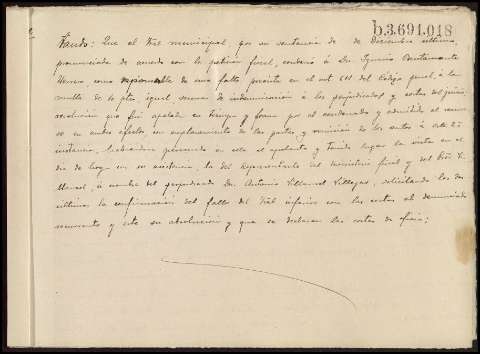 b.3.691.018
Fando: Que el Tral municipal, por su sentencia de de Diciembre último,
pronunciada de acuerdo con la petición fiscal, condenó á Dn. Ignacio Bustamante
como responsable de una falta prevista en el art del Código penal, á la
multa de ptas, igual suma de indemnización á los perjudicados y costas del juicio
resolución que fué apelada en tiempo y forma por el condenado y admitido el recur
so en ambos efectos, con emplazamiento de las partes, y remisión de los autos á este
instancia, habiéndose personado en ella el apelante y tenido lugar la vista en el
día de hoy con su asistencia, la del Representante del Ministerio fiscal y del
Manuel, á nombre del perjudicado Dn. Antonio Villarroel Villegas, solicitando los dos
últimos la confirmación del fallo del Tral inferior con las costas al denunciado
recurrente y este su absolución y que se declaren las costas de oficio;